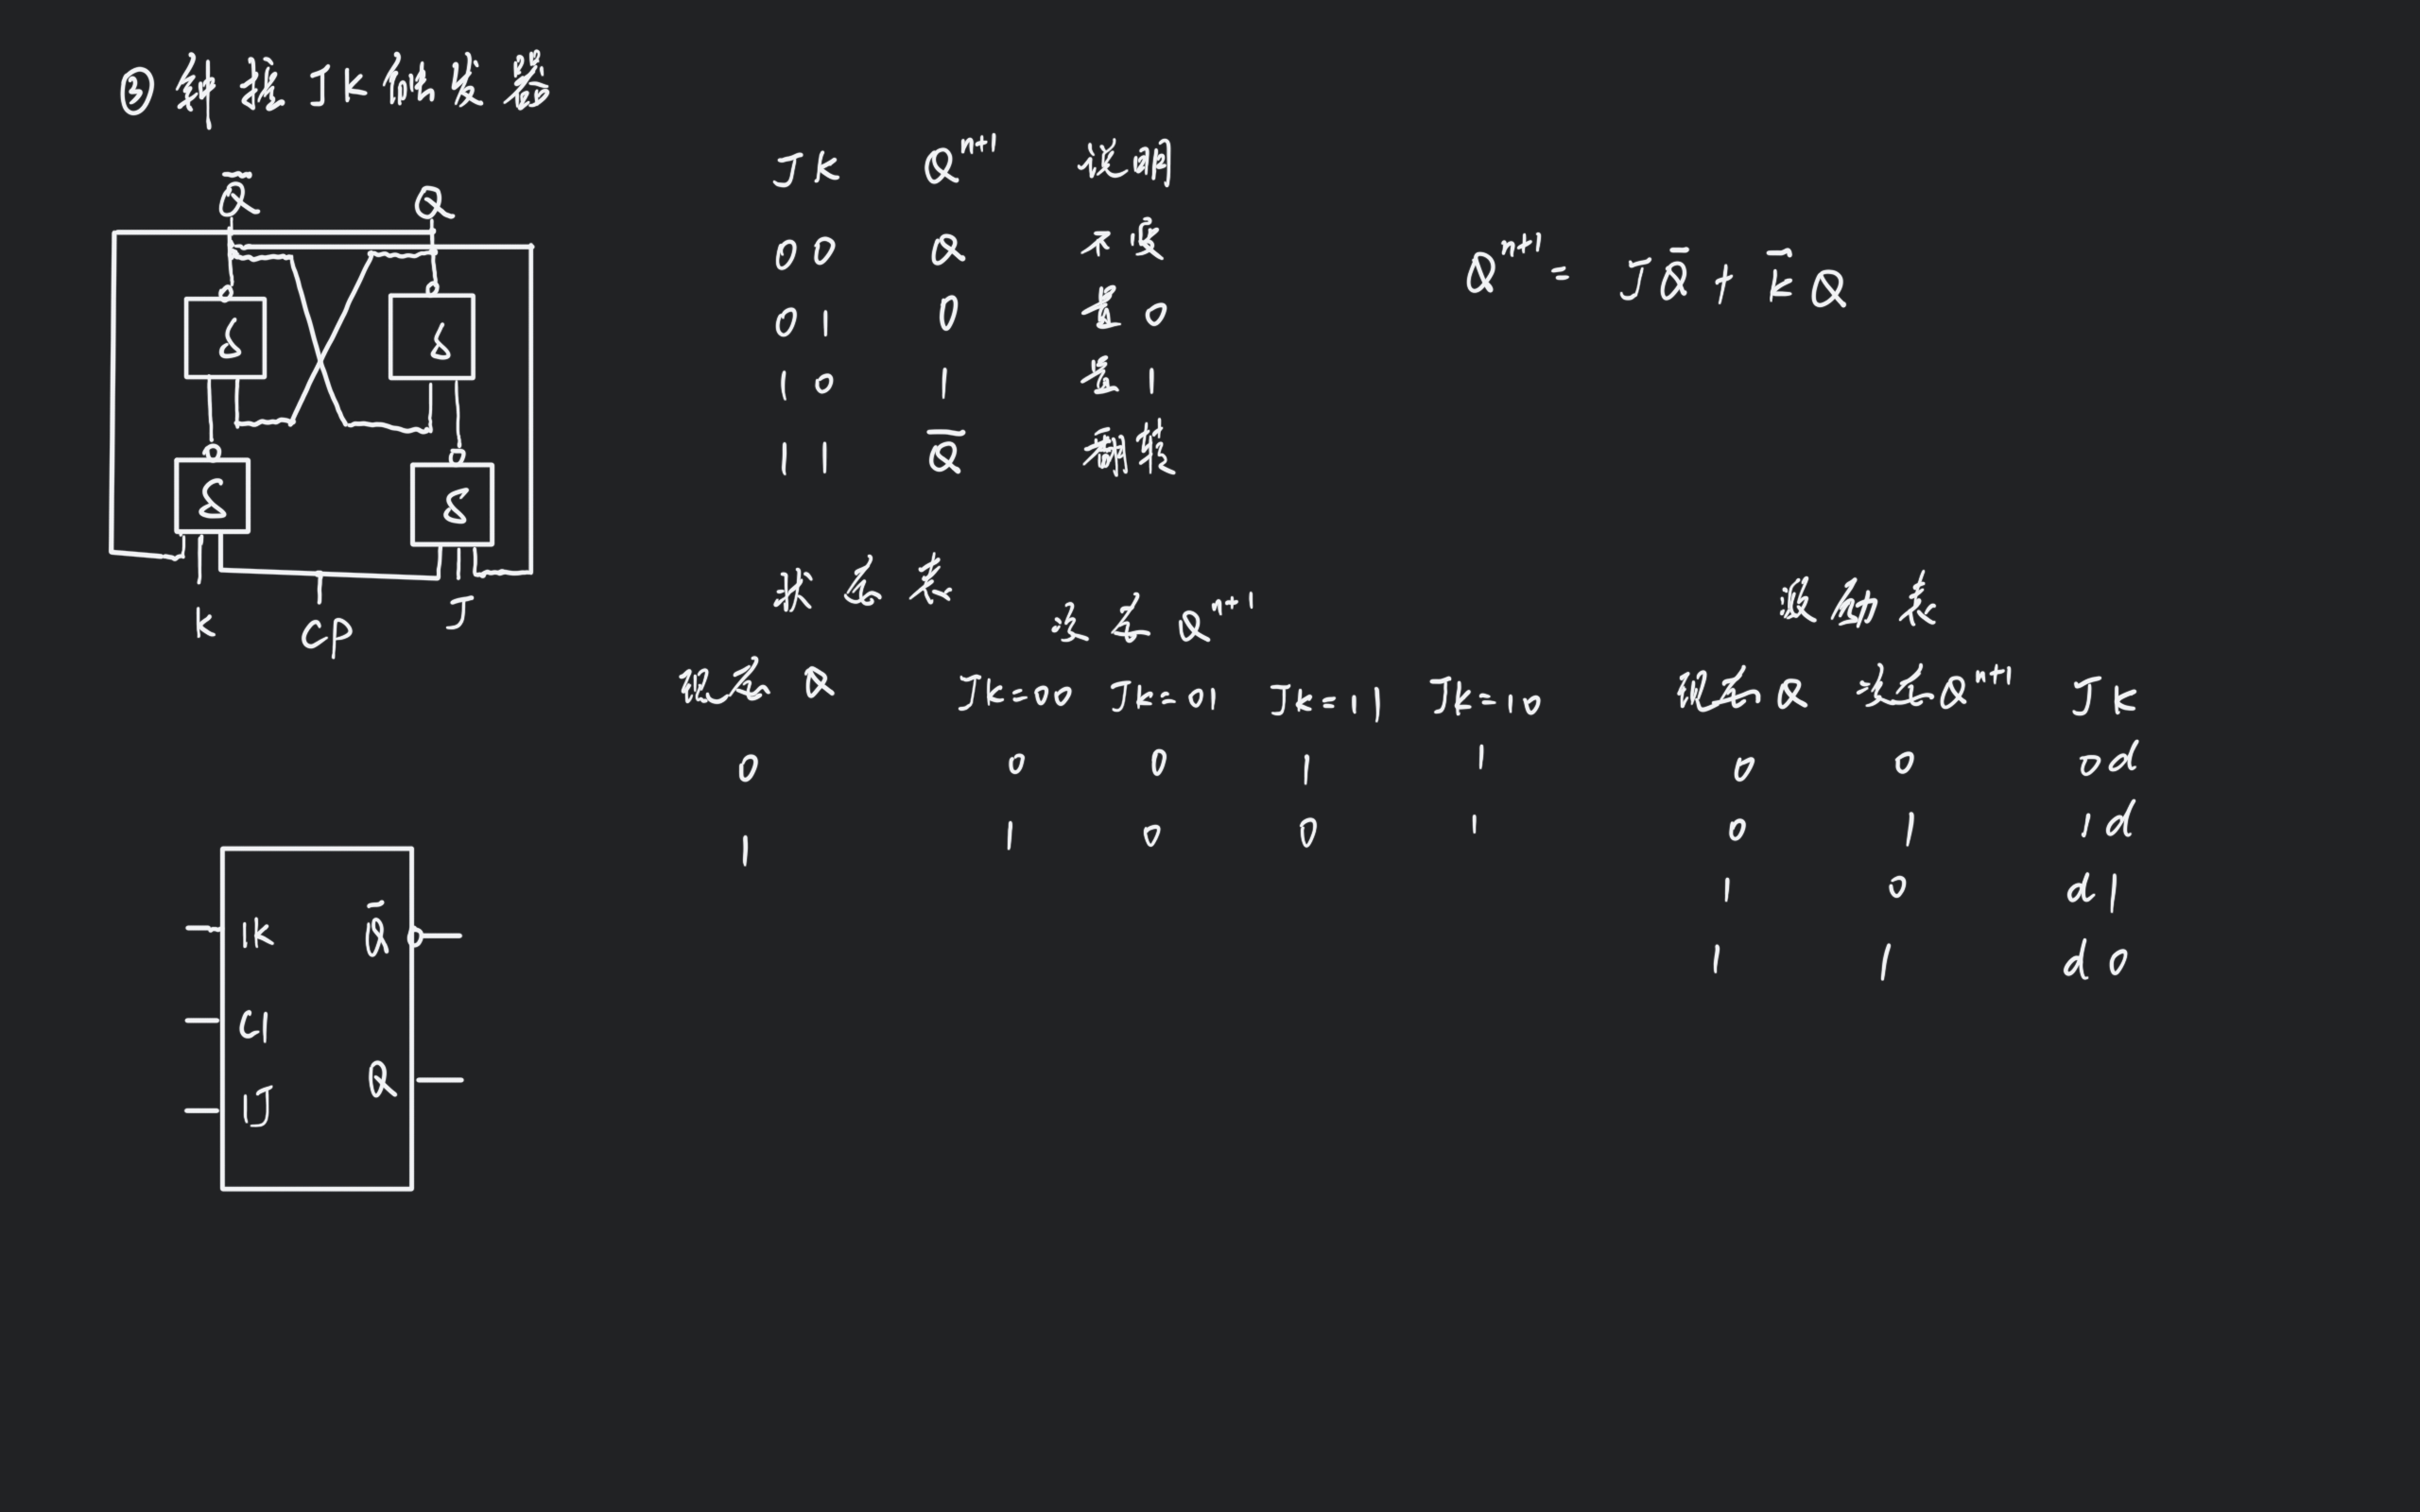 ③ 钟控JK触发器
Q̅ Q
& &
& &
K CP J
JK Qⁿ⁺¹ 说明
00 Q 不变
01 0 置0
10 1 置1
11 Q̅ 翻转
Qⁿ⁺¹ = JQ̅ + K̅Q
状态表
次态 Qⁿ⁺¹
现态 Q JK=00 JK=01 JK=11 JK=10
0 0 0 1 1
1 1 0 0 1
激励表
现态Q 次态Qⁿ⁺¹ JK
0 0 0d
0 1 1d
1 0 d1
1 1 d0
1K Q̅
C1
1J Q